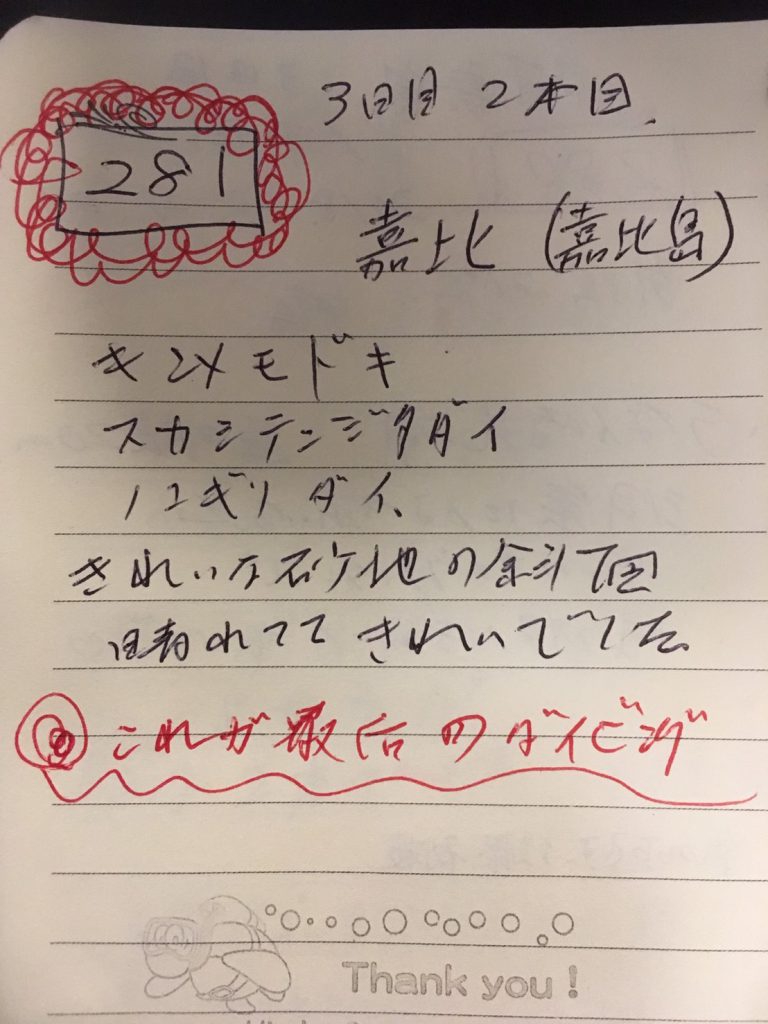 3日目 2本目.
281
嘉比 (嘉比島)
キンメモドキ
スカシテンジクダイ
ノコギリダイ、
きれいな砂地の斜面
晴れてて きれいでした。
これが最后のダイビング
Thank you!